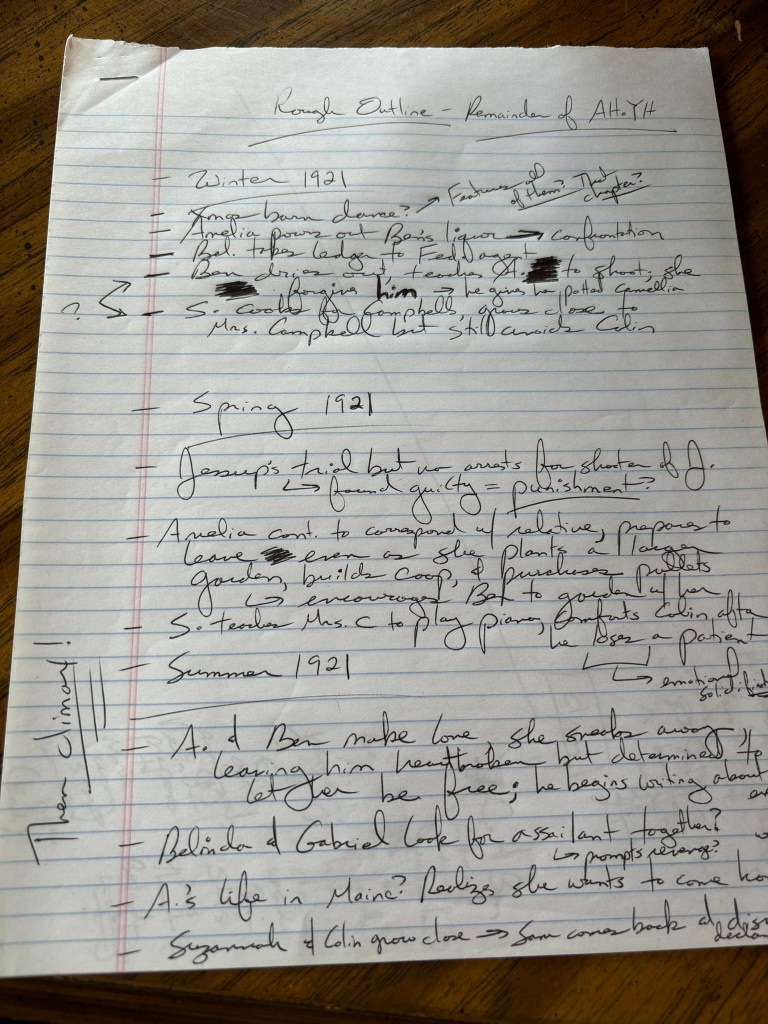 Rough Outline - Remainder of AHoYH
- Winter 1921
- Xmas barn dance? → Features all of them? That chapter?
- Amelia pours out Ben's liquor → confrontation
- Bel. takes ledger to Fed agent
- Ben dries out, teaches A. to shoot; she
forgives him → he gives her potted camellia
? - S. cooks for Campbells, grows close to
Mrs. Campbell but still avoids Colin
- Spring 1921
- Jessup's trial but no arrests for shooter of J.
↳ found guilty = punishment?
- Amelia cont. to correspond w/ relative, prepares to
leave even as she plants a larger
garden, builds coop, & purchases pullets
↳ encourages Ben to garden w/ her
- S. teaches Mrs. C to play piano, comforts Colin after
he loses a patient
↳ emotional
- Summer 1921
Then climax!
- A. & Ben make love, she sneaks away,
leaving him heartbroken but determined to
let her be free; he begins writing about
- Belinda & Gabriel look for assailant together?
↳ prompts revenge?
- A.'s life in Maine? Realizes she wants to come
- Suzannah & Colin grow close → Sam comes back